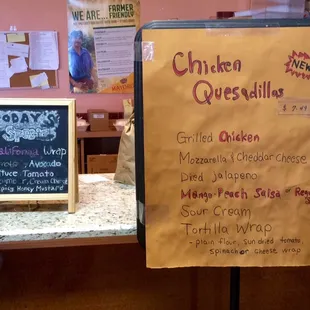 WE ARE... FARMER FRIENDLY
TODAY'S
Specials
California Wrap
Avocado
Lettuce Tomato
Spicy Honey Mustard
Chicken
Quesadillas
NEW
Grilled Chicken
Mozzarella & Cheddar Cheese
Died jalapeño
Mango-Peach Salsa -
Sour Cream
Tortilla Wrap
- plain flour, sun dried tomato
spinach or cheese wrap